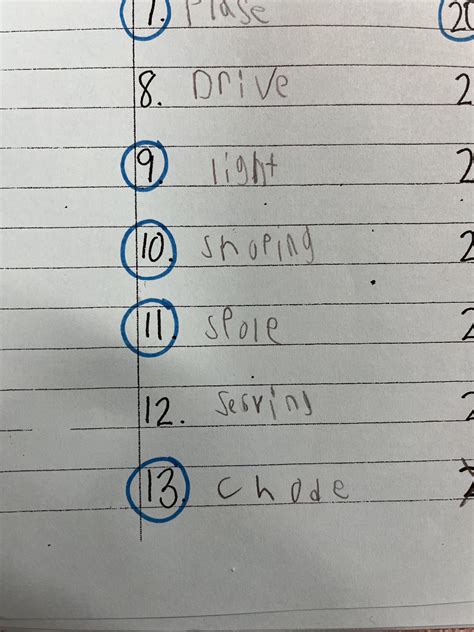 7. Plase 20
8. Drive 2
9. light 2
10. shoping 2
11. spole 2
12. serving 2
13. chode